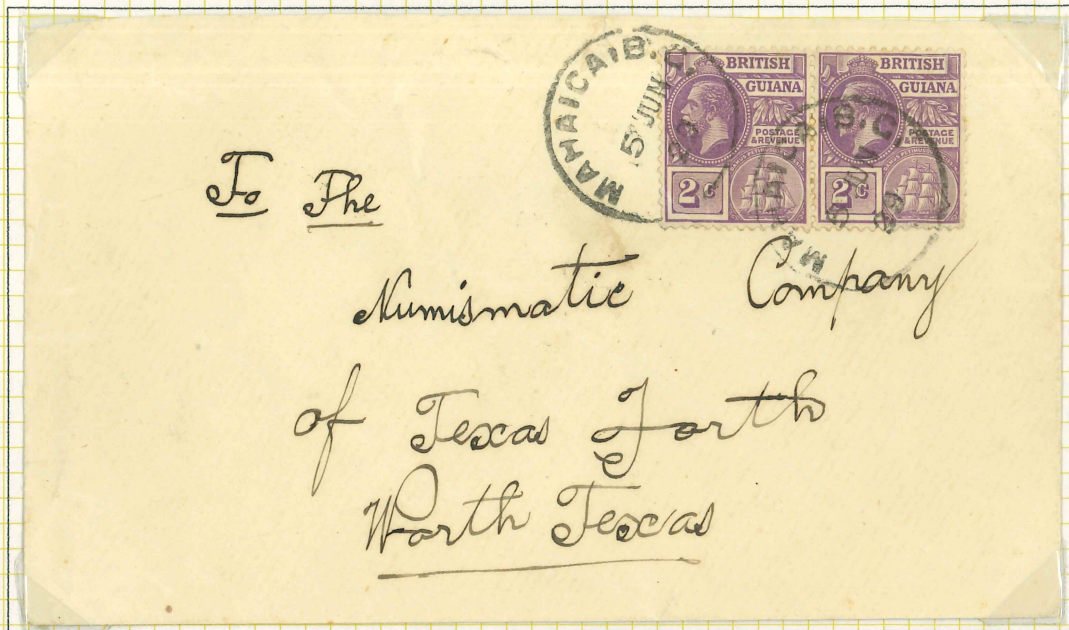 MAHAICA · B.G.
5 JUN
29
BRITISH
GUIANA
POSTAGE
& REVENUE
2c
BRITISH
GUIANA
POSTAGE
& REVENUE
2c
MAHAICA B.G.
5 JUN
29
To The
Numismatic Company
of Texas Forth
Worth Texas